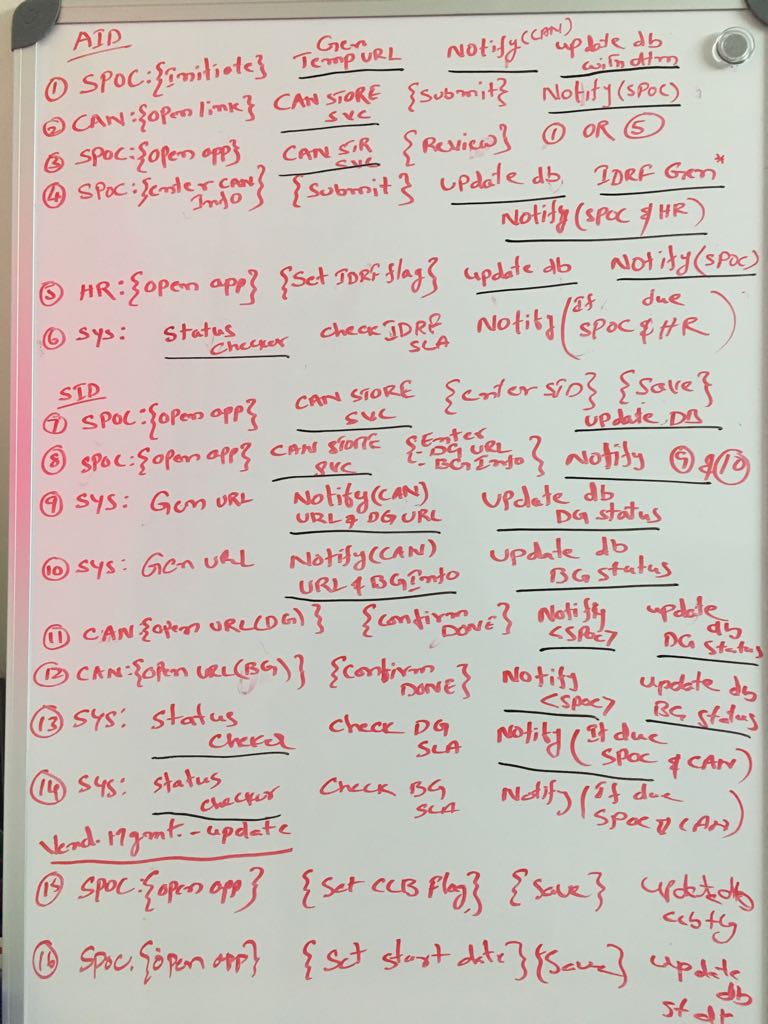 AID
① SPOC:{Initiate} Gen Temp URL Notify(CAN) update db with dttm
② CAN:{open link} CAN STORE SVC {Submit} Notify(SPOC)
③ SPOC:{open app} CAN STR SVC {Review} ① OR ⑤
④ SPOC:{enter CAN Info} {Submit} update db IDRF Gen*
Notify(SPOC & HR)
⑤ HR:{open app} {Set IDRF flag} update db Notify(SPOC)
⑥ Sys: Status Checker check IDRF SLA Notify(If due SPOC & HR)
SID
⑦ SPOC:{open app} CAN STORE SVC {enter SID} {Save} update DB
⑧ SPOC:{open app} CAN STORE SVC {Enter - DG URL - BG Info} Notify ⑨ & ⑩
⑨ SYS: Gen URL Notify(CAN) URL & DG URL update db DG status
⑩ SYS: Gen URL Notify(CAN) URL & BG Info update db BG status
⑪ CAN{open URL(DG)} {confirm DONE} Notify <SPOC> update db DG status
⑫ CAN:{open URL(BG)} {confirm DONE} Notify <SPOC> update db BG status
⑬ SYS: Status Checker Check DG SLA Notify(If due SPOC & CAN)
⑭ SYS: Status Checker Check BG SLA Notify(If due SPOC & CAN)
Vend. Mgmt. - update
⑮ SPOC:{open app} {Set CCB Flag} {Save} update db ccb flg
⑯ SPOC:{open app} {Set start date} {Save} update db st dt